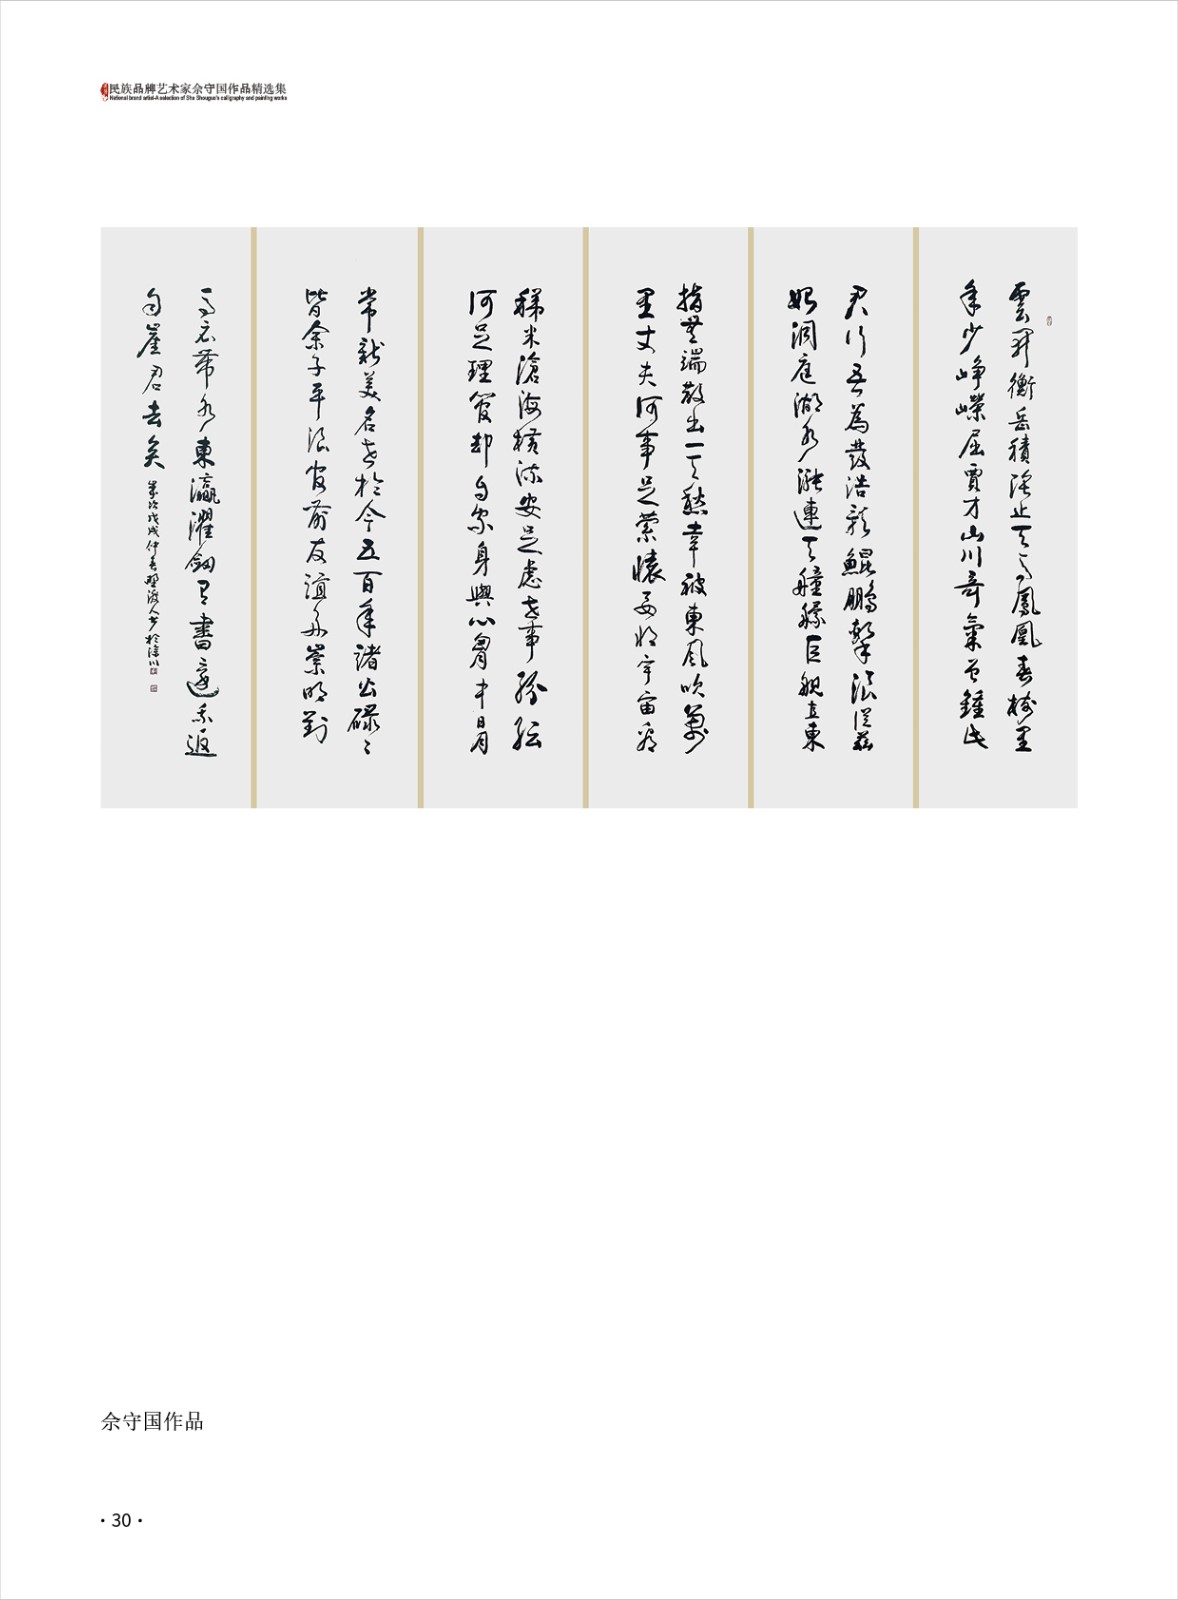 民族品牌艺术家佘守国作品精选集
National brand artist-A selection of She Shouguo's calligraphy and painting works
雲開衡岳積陰止天馬鳳凰春樹里
年少崢嶸屈賈才山川奇氣曾鍾此
君行吾為發浩歌鯤鵬擊浪從茲
始洞庭湖水漲連天艟艨巨舰直東
指無端散出一天愁幸被東風吹萬
里丈夫何事足縈懷要將宇宙看
稊米滄海橫流安足慮世事紛紜
何足理管却自家身與心胸中日月
常新美名世於今五百年諸公碌々
皆余子平浪宮前友誼多崇明對
馬衣帶水東瀛濯劍有書還我返
自崖君去矣 戊戌仲春野渡人書於
佘守国作品
·30·